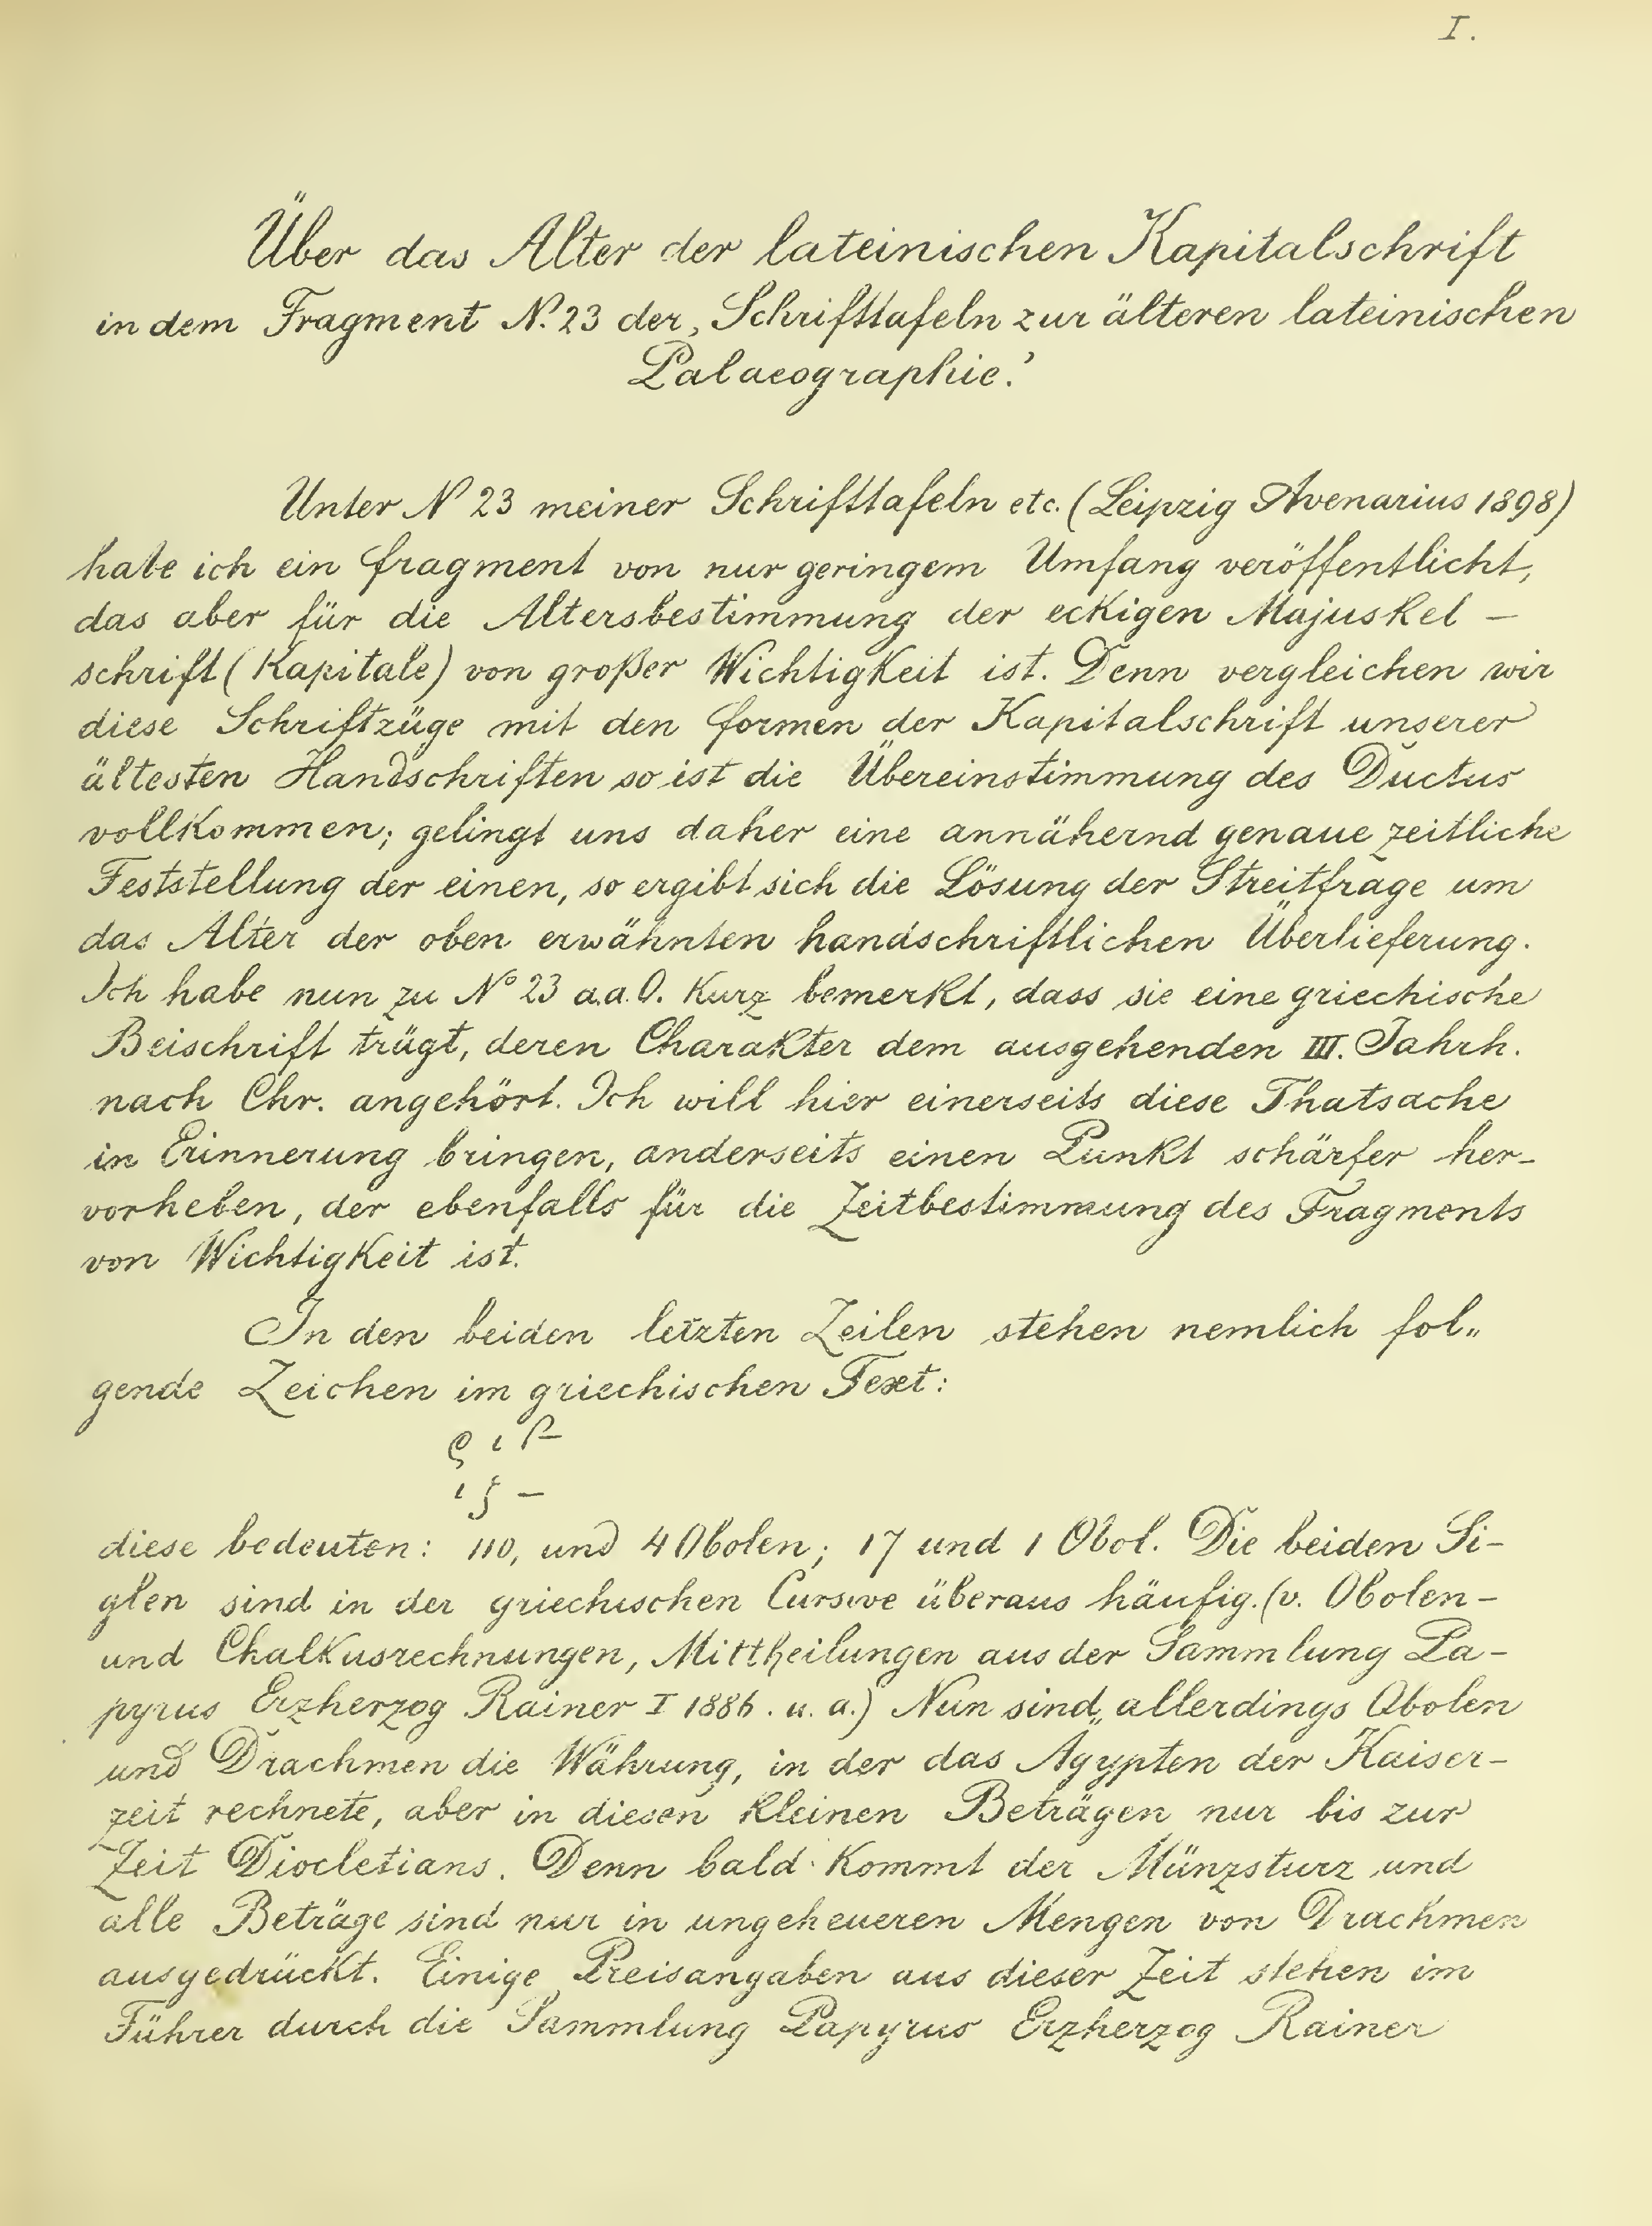 I.
Über das Alter der lateinischen Kapitalschrift
in dem Fragment N. 23 der ‚Schrifttafeln zur älteren lateinischen
Palaeographie.’
Unter N 23 meiner Schrifttafeln etc. (Leipzig Avenarius 1898)
habe ich ein Fragment von nur geringem Umfang veröffentlicht,
das aber für die Altersbestimmung der eckigen Majuskel –
schrift (Kapitale) von großer Wichtigkeit ist. Denn vergleichen wir
diese Schriftzüge mit den Formen der Kapitalschrift unserer
ältesten Handschriften so ist die Übereinstimmung des Ductus
vollkommen; gelingt uns daher eine annähernd genaue zeitliche
Feststellung der einen, so ergibt sich die Lösung der Streitfrage um
das Alter der oben erwähnten handschriftlichen Überlieferung.
Ich habe nun zu N° 23 a.a.O. kurz bemerkt, dass sie eine griechische
Beischrift trägt, deren Charakter dem ausgehenden III. Jahrh.
nach Chr. angehört. Ich will hier einerseits diese Thatsache
in Erinnerung bringen, anderseits einen Punkt schärfer her-
vorheben, der ebenfalls für die Zeitbestimmung des Fragments
von Wichtigkeit ist.
In den beiden letzten Zeilen stehen nemlich fol„
gende Zeichen im griechischen Text:
diese bedeuten: 110, und 4 Obolen; 17 und 1 Obol. Die beiden Si-
glen sind in der griechischen Cursive überaus häufig. (v. Obolen-
und Chalkusrechnungen, Mittheilungen aus der Sammlung Pa-
pyrus Erzherzog Rainer I 1886. u. a.) Nun sind allerdings Obolen
und Drachmen die Währung, in der das Ägypten der Kaiser-
zeit rechnete, aber in diesen kleinen Beträgen nur bis zur
Zeit Diocletians. Denn bald kommt der Münzsturz und
alle Beträge sind nur in ungeheueren Mengen von Drachmen
ausgedrückt. Einige Preisangaben aus dieser Zeit stehen im
Führer durch die Sammlung Papyrus Erzherzog Rainer